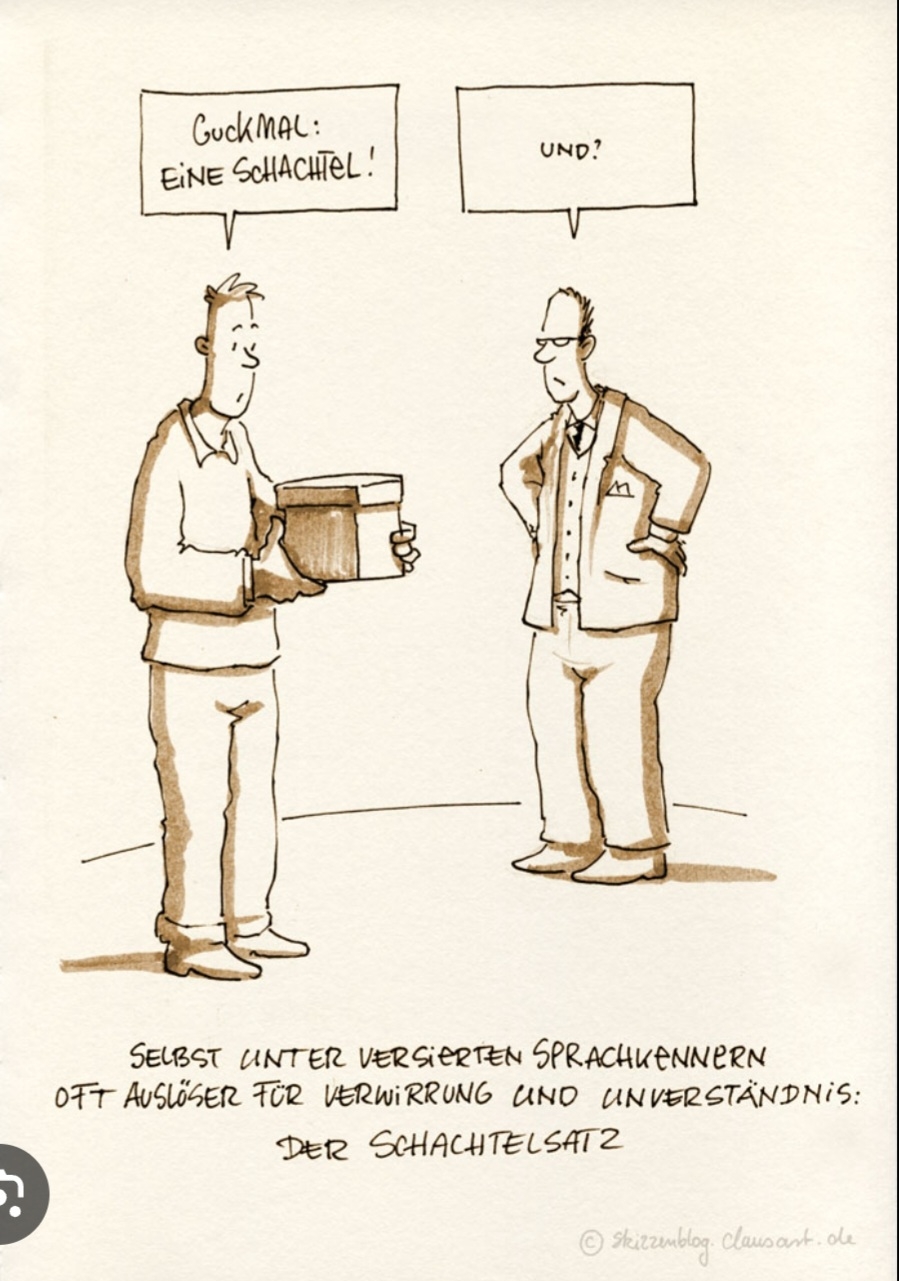 GUCKMAL:
EINE SCHACHTEL!
UND?
SELBST UNTER VERSIERTEN SPRACHKENNERN
OFT AUSLÖSER FÜR VERWIRRUNG UND UNVERSTÄNDNIS:
DER SCHACHTELSATZ
© skizzenblog.clausast.de